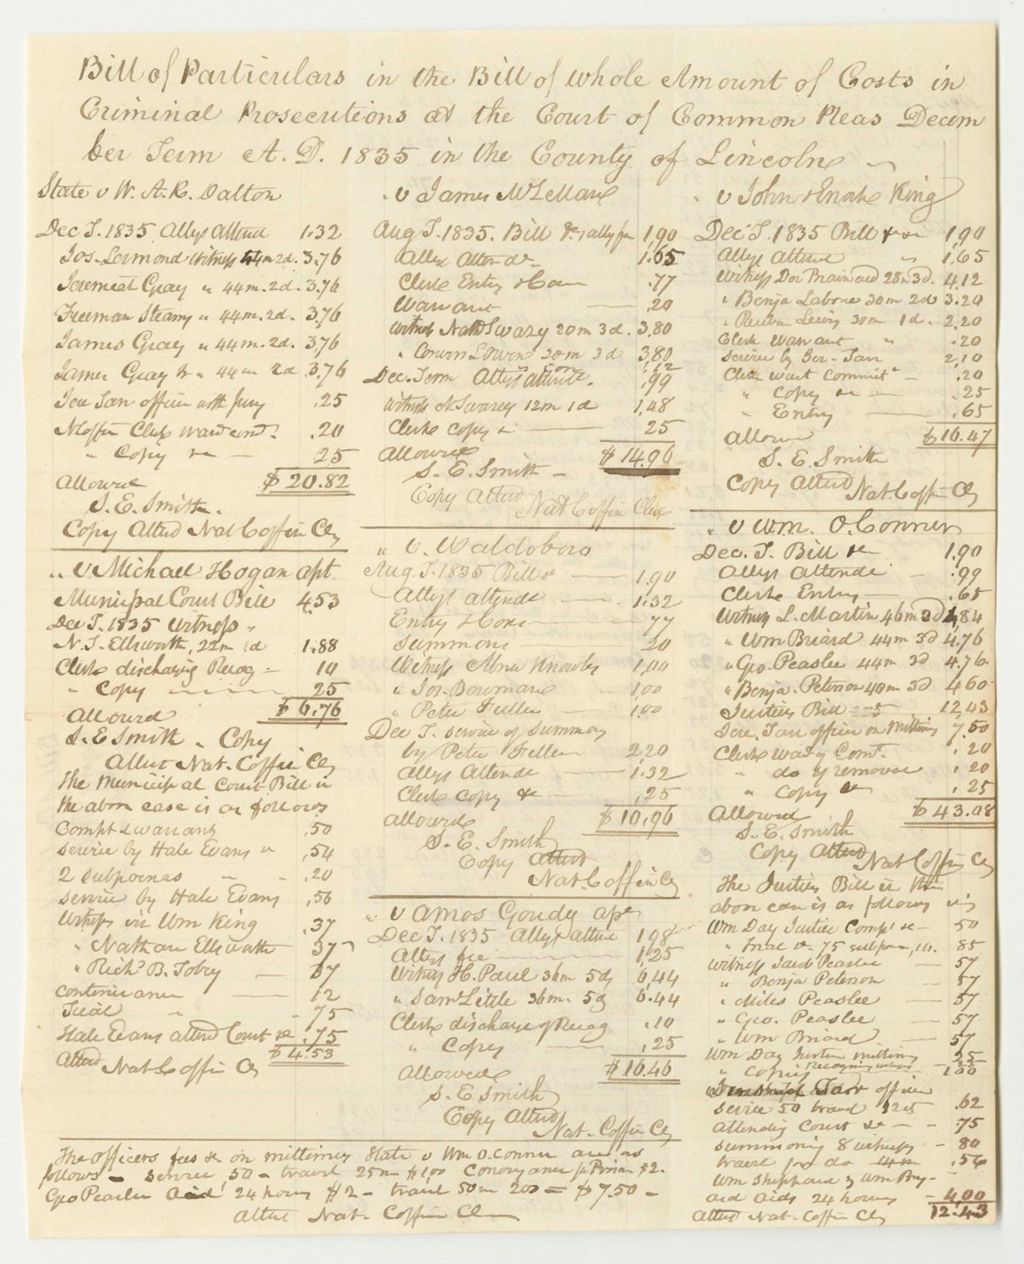 Bill of Particulars in the Bill of whole Amount of Costs in
Criminal Prosecutions at the Court of Common Pleas Decem
ber Term A. D. 1835 in the County of Lincoln
State v W. A. R. Dalton
Dec T. 1835 Attys Attend 1.32
Jos. Witness 44 m 2d. 3.76
Jeremiah Gray " 44 m. 2d. 3.76
Freeman " 44 m. 2d. 3.76
James Gray " 44 m. 2d. 3.76
James Gray " 44 m 2d 3.76
officer with Jury .25
N Coffin Clerk .20
" Copy &c 25
Allowed $20.82
S. E. Smith.
Copy Attest Nat Coffin Clk
" v Michael Hogan apt
Municipal Court Bill 4.53
Dec T. 1835 Witness
N. T. Ellsworth, 22 m 1d 1.88
Clerk discharging Recog 10
" Copy 25
Allowed $6.76
S. E Smith Copy
Attest Nat. Coffin Clk
The Municipal Court Bill in
the above case is as follows
Compt & warrant .50
service by Hale Evans .54
2 subpoenas .20
service by Hale Evans .56
Witness Wm King .37
" Nathan Ellsworth 37
" Rich B. Tobey 37
continuance 12
Trial 75
Hale Evans attend Court &c .75
$4.53
Attest Nat Coffin Clk
" v James McLellan
Aug T. 1835. Bill 1,90
Attys Attendc 1.65
Clerk Entry & Con .77
Warrant .20
Witness Nath Swazy 20 m 3d. 3,80
" 20 m 3d 3,80
Dec. Term Attys attendc. .99
Witness N. Swazey 12 m 1d 1,48
Clerk copy 25
Allowed $14.96
S. E. Smith
Copy Attest
Nat Coffin Clk
" v. Waldoboro
Aug. T. 1835 Bill &c 1.90
Attys attendc 1.32
Entry & Con 77
Summons 20
Witness Knowles 1,00
" Jos. Bowman 1.00
" Peter Fuller 1.00
Dec T. service of summons
by Peter Fuller 2.20
Attys Attendc 1.32
Clerk Copy &c .25
Allowed $10,96
S. E. Smith
Copy Attest
Nat. Coffin Clk
" v Amos Goudy apt
Dec T. 1835 Attys attend 1.98
Attys fee 1,25
Witness H. Paul 36 m 5d 6,44
" Saml Little 36 m. 5d 6.44
Clerk discharge of Recog .10
" Copy .25
Allowed $16.46
S. E. Smith
Copy Attest
Nat. Coffin Clk
" v John & Enoch King
Dec T. 1835 Bill &c 1.90
Attys attend 1,65
Witness 28 m 3d. 4,12
" Benja 30 m 2d 3.20
" 30 m 1d. 2,20
Clerk Warrant .20
service by 2,10
Clerk wart Committ .20
" Copy &c .25
" Entry .65
Allowed $16.47
S. E. Smith
Copy Attest Nat Coffin Clk
" v Wm. O.Conner
Dec. T. Bill &c 1.90
Attys Attendc .99
Clerks Entry .65
Witness L. Martin 46 m 3d 4,84
" Wm Briard 44 m 3d 4.76
" Geo. Peaslee 44 m 3d 4.76
" Benja. Peterson 40 m 3d 4 60
Justices Bill 12.43
officer on Mittimus 7.50
Clerk Comt. .20
" do of removal .20
" Copy &c .25
Allowed $43.08
S. E. Smith
Copy Attest Nat Coffin Clk
The Justices Bill in the
above case is as follows viz
Wm Day Justice Compt &c 50
" Trial &c 75 subpoen, 10. 85
Witness Jacob Peaslee 57
" Benja Peterson 57
" Miles Peaslee 57
" Geo. Peaslee 57
" Wm Briard 57
Wm Day Justice mittimus 25
" Copies Recognizances 1.00
officer
service 50 travel 12 .62
attending Court &c .75
summoning 8 witnesses 80
travel for do .56
Wm Sheppard & Wm
aid aids 24 hours 4.00
Attest Nat. Coffin Clk 12.43
The Officers fees &c on mittimus State v Wm O.Conner are as
follows - service, 50 - travel 25 m $1,00 Conveyance of Prisoner $2.
Geo Peaslee Aid 24 hours $2 - travel 50 m 200 = $7.50 -
Attest Nat. Coffin Clk